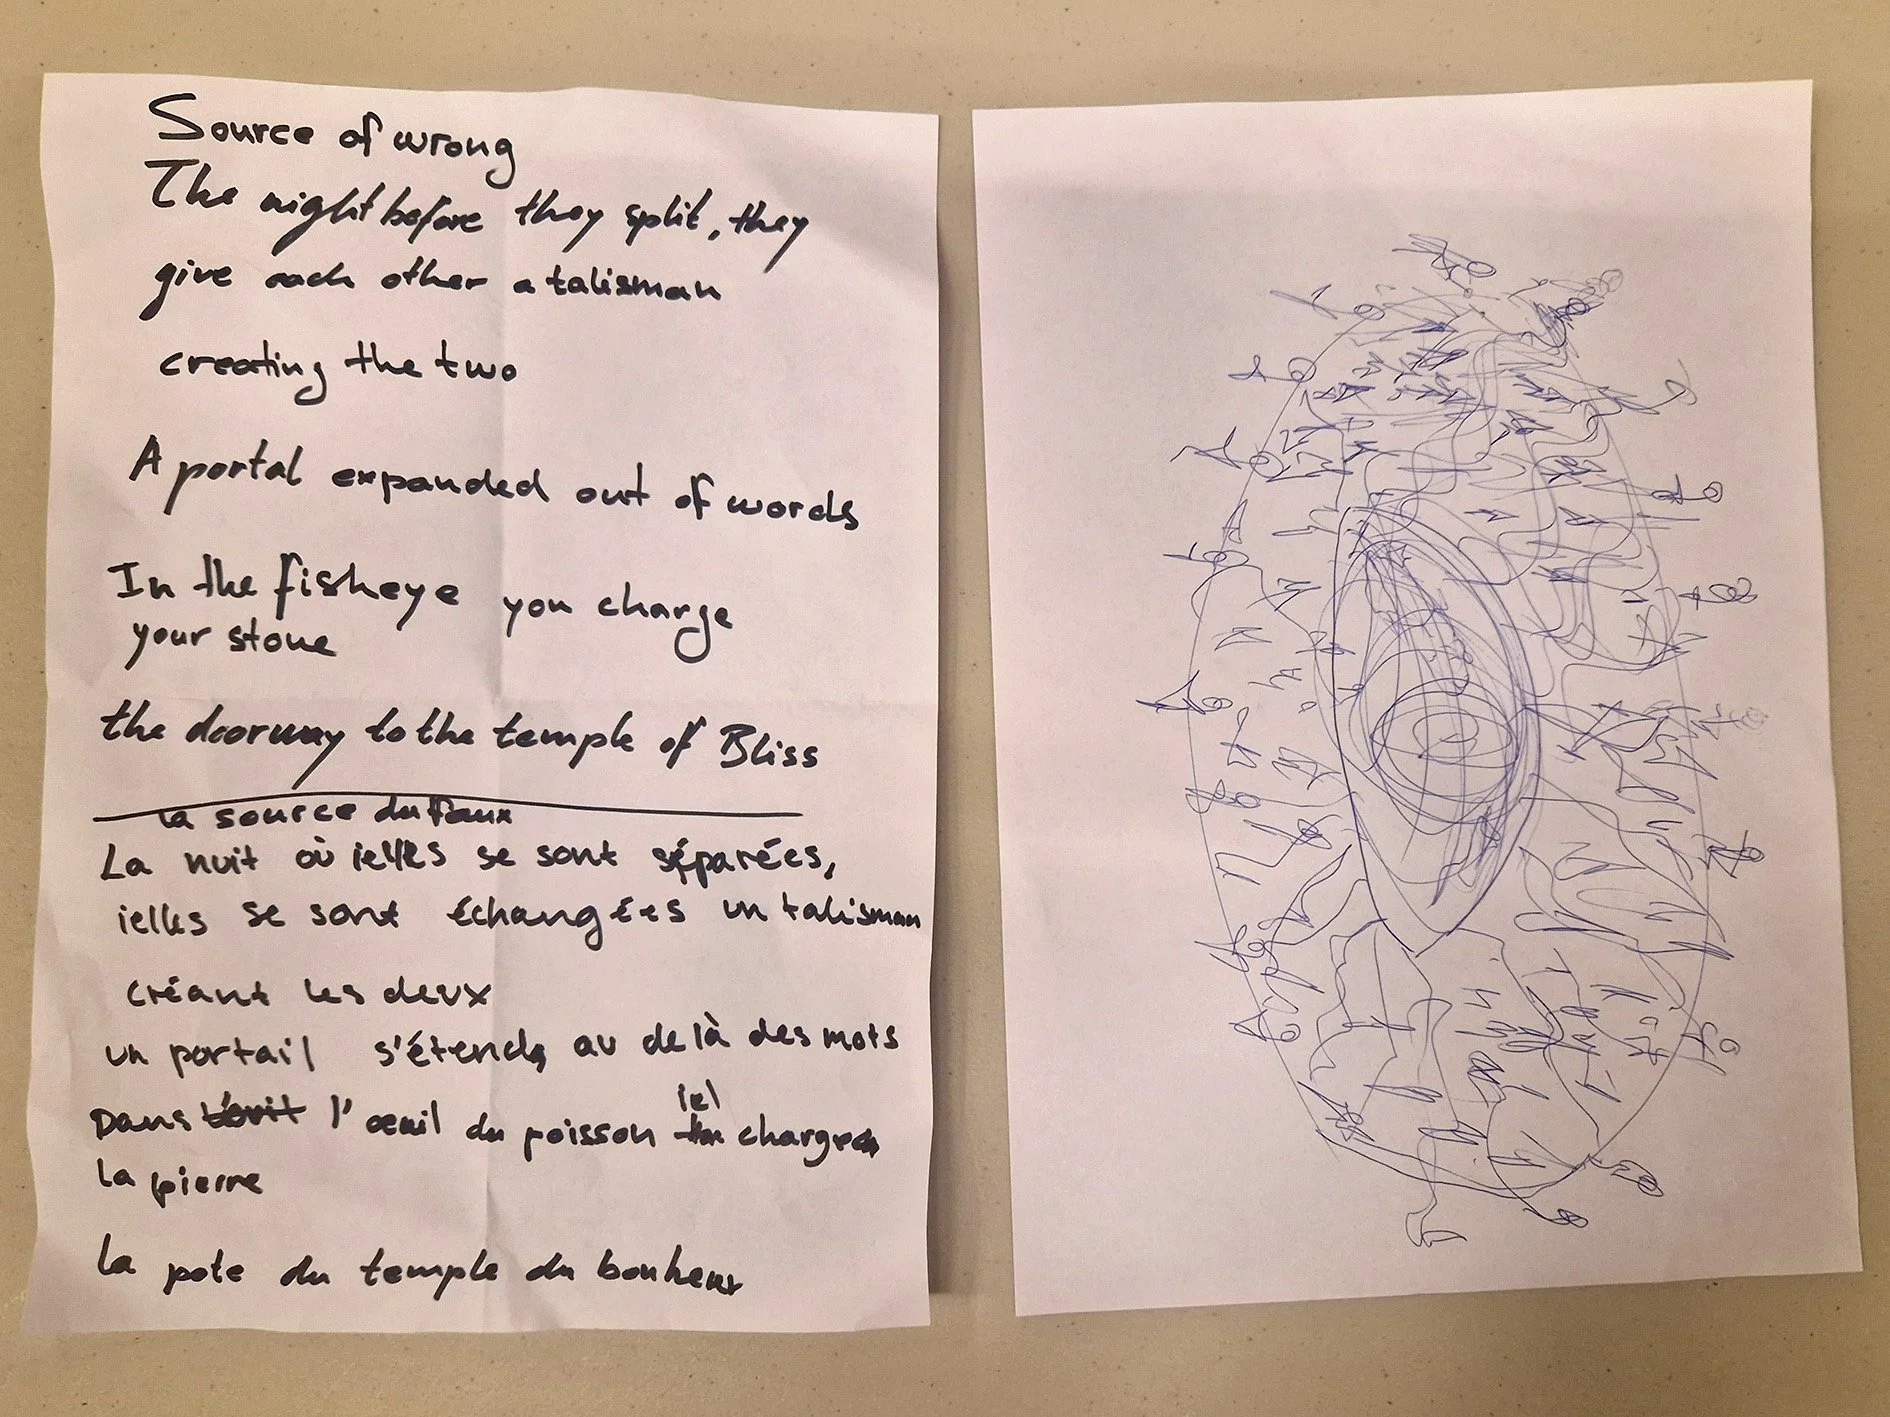 Source of wrong
The night before they split, they
give each other a talisman
creating the two
A portal expanded out of words
In the fisheye you charge
your stone
the doorway to the temple of Bliss
la source du faux
La nuit où ielles se sont séparées,
ielles se sont échangées un talisman
créant les deux
un portail s'étend au delà des mots
Dans l'oeuil du poisson iel charge
la pierre
la pote du temple du bonheur